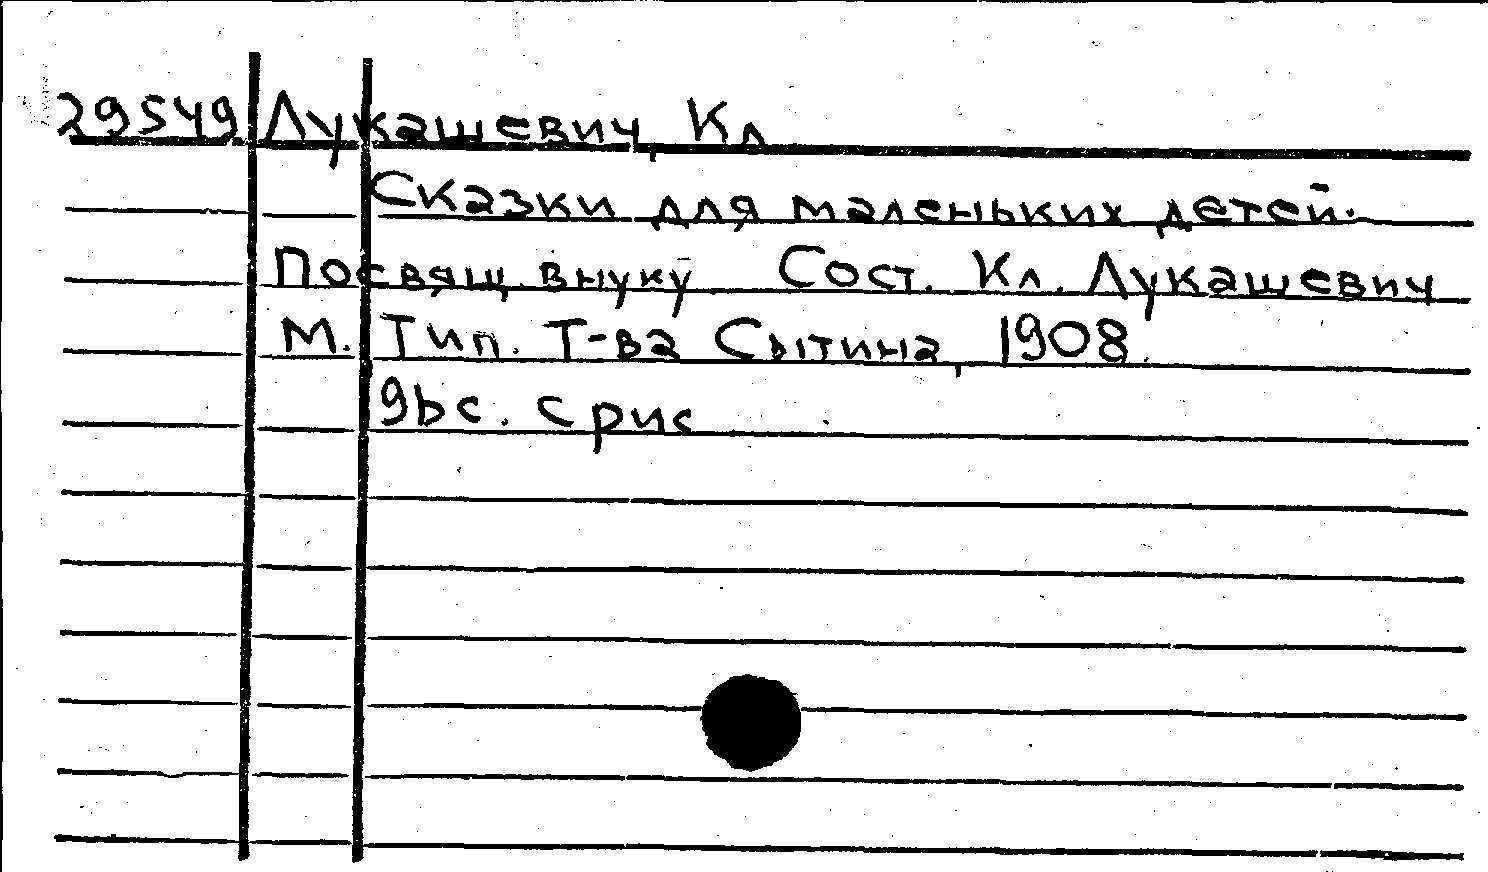 29549 Лукашевич, Кл
Сказки для маленьких детей.
Посвящ. внуку Сост. Кл. Лукашевич
М. Тип. Т-ва Сытина, 1908.
96с. с рис